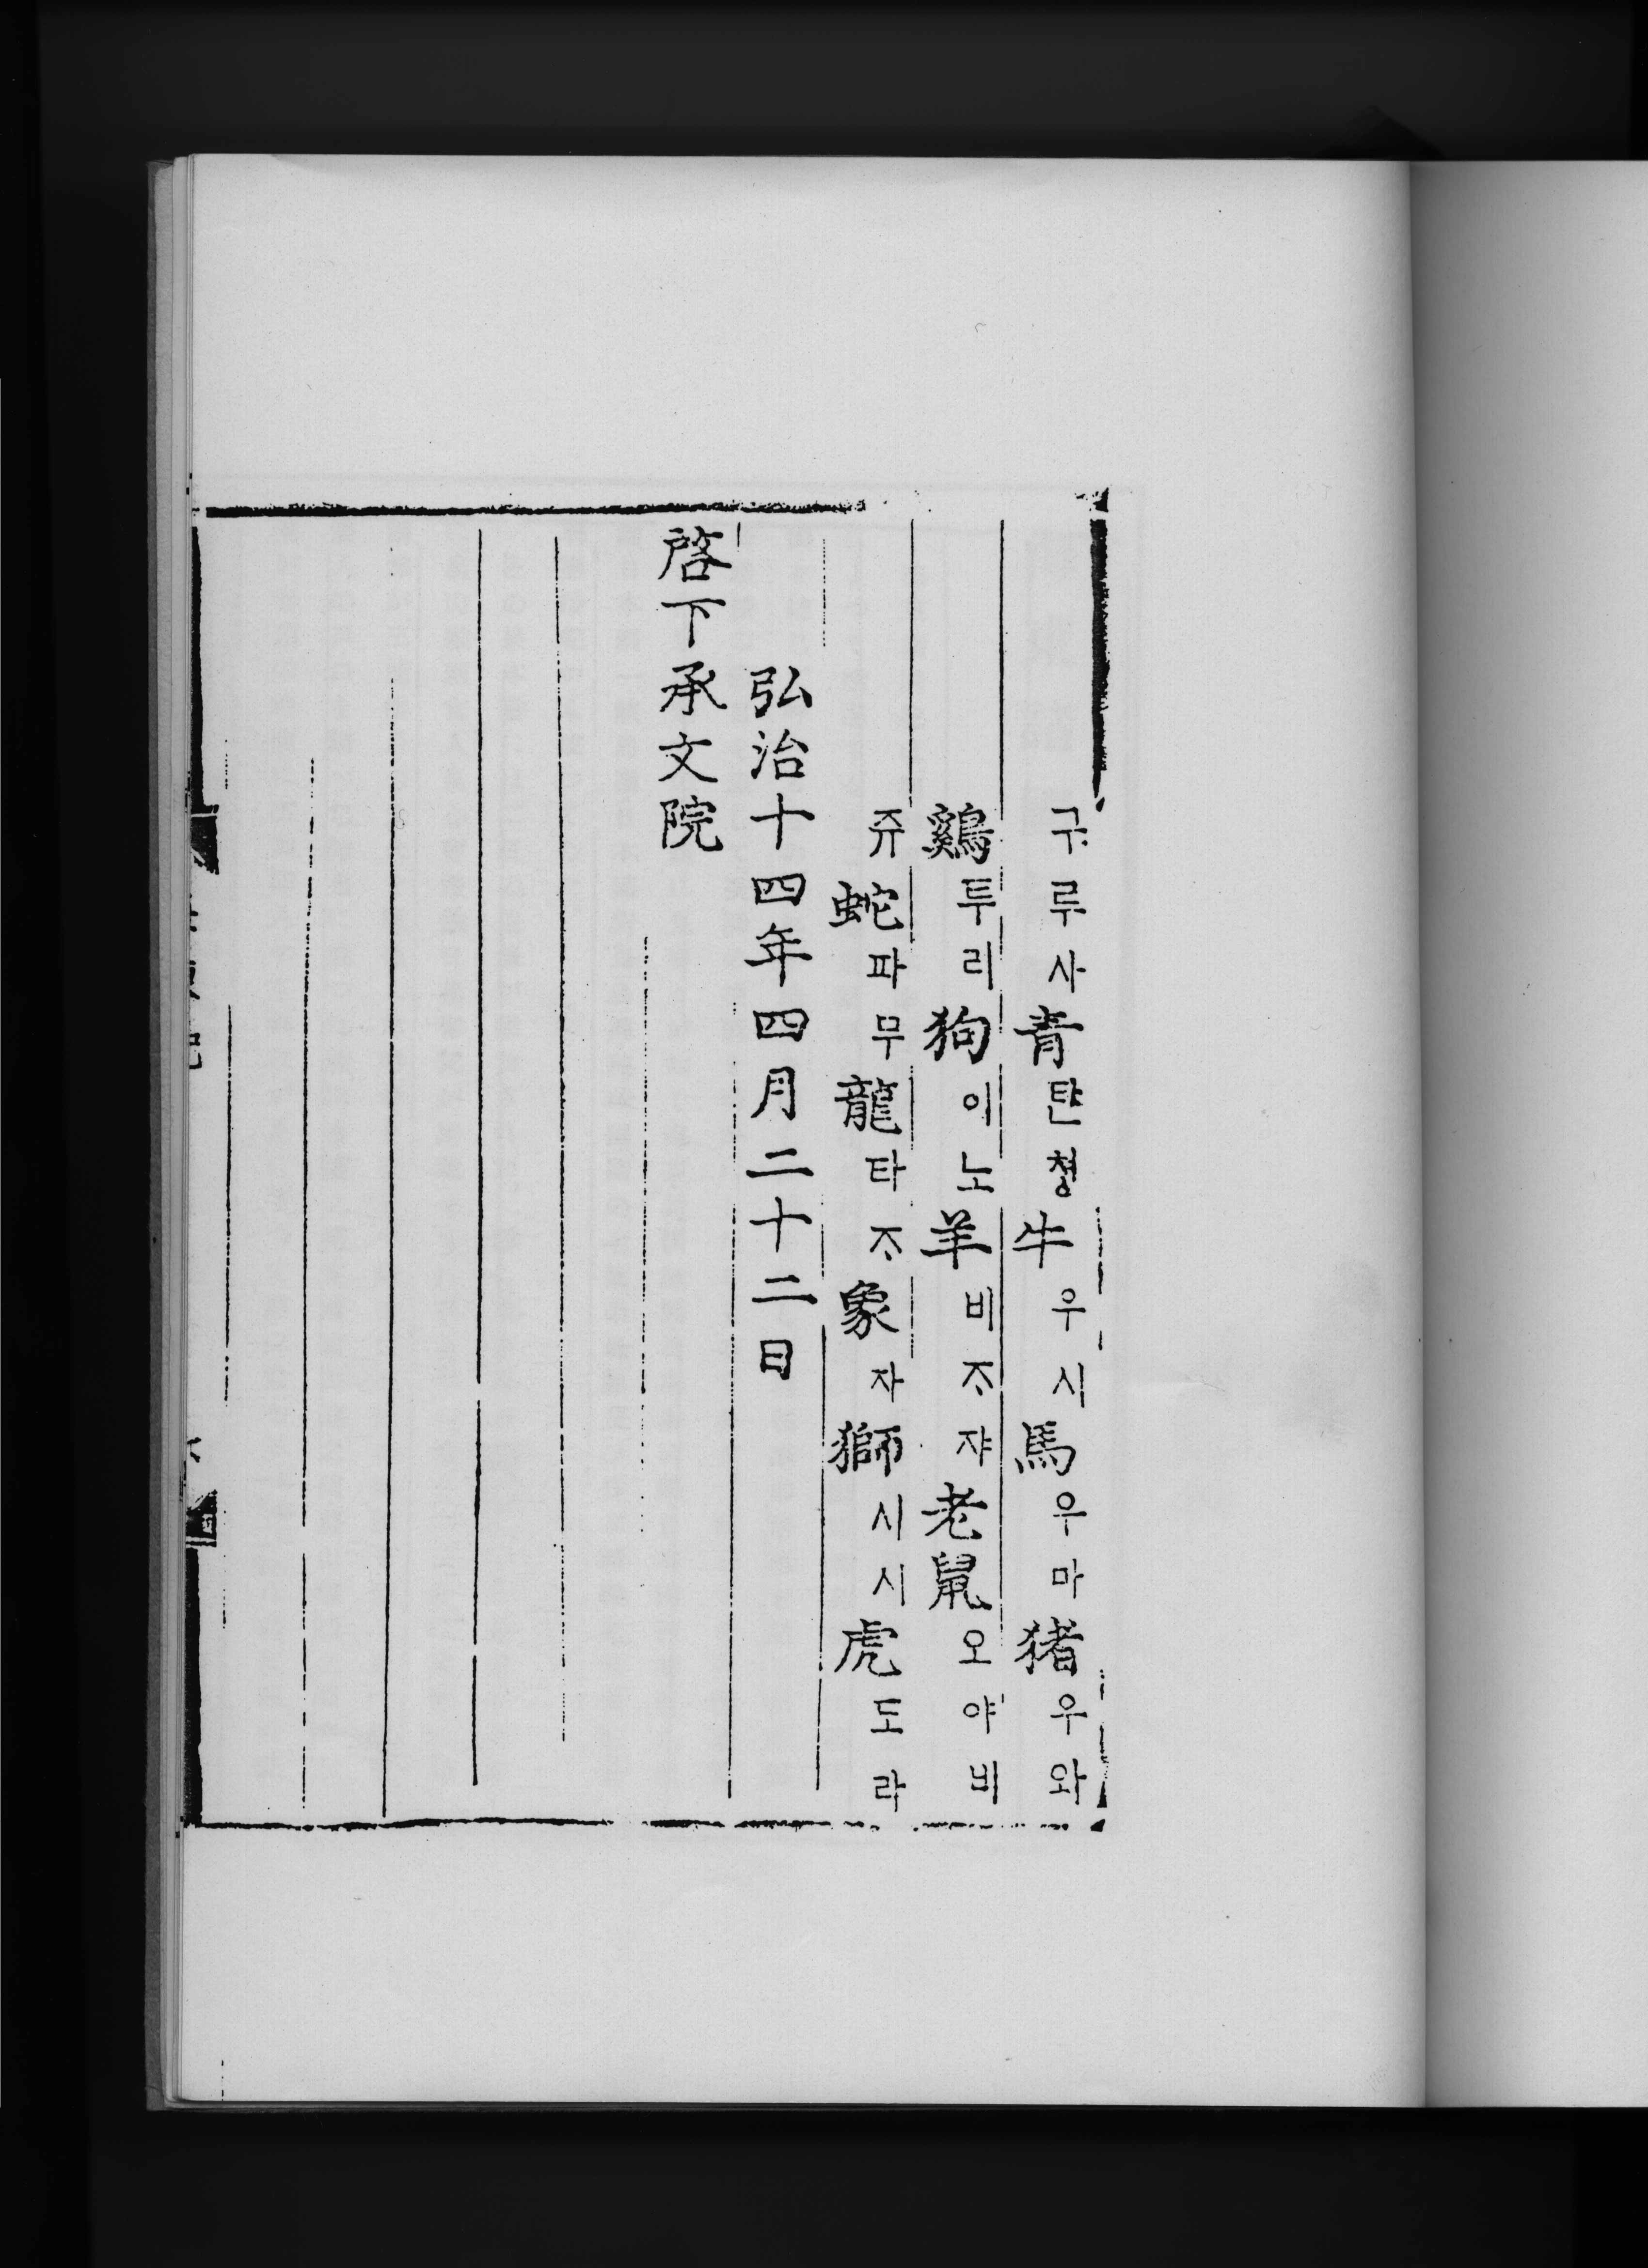 구루사青탄쳥牛우시馬우마猪우와
鷄투리狗이노羊비ᄌᆞ쟈老鼠오야비
쥬蛇파무龍타ᄌᆞ象자獅시시虎도라
弘治十四年四月二十二日
啓下承文院